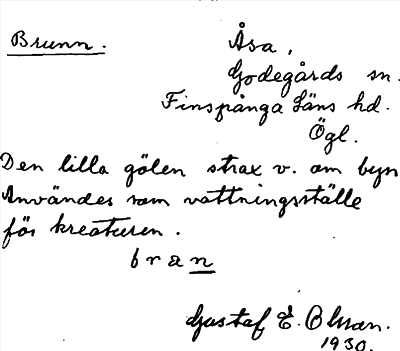 Brunn.
Åsa,
Godegårds sn.
Finspånga Läns hd.
Ögl.
Den lilla gölen strax v. om byn
Användes som vattningsställe
för kreaturen.
bran
Gustaf E. Olsson.
1930.